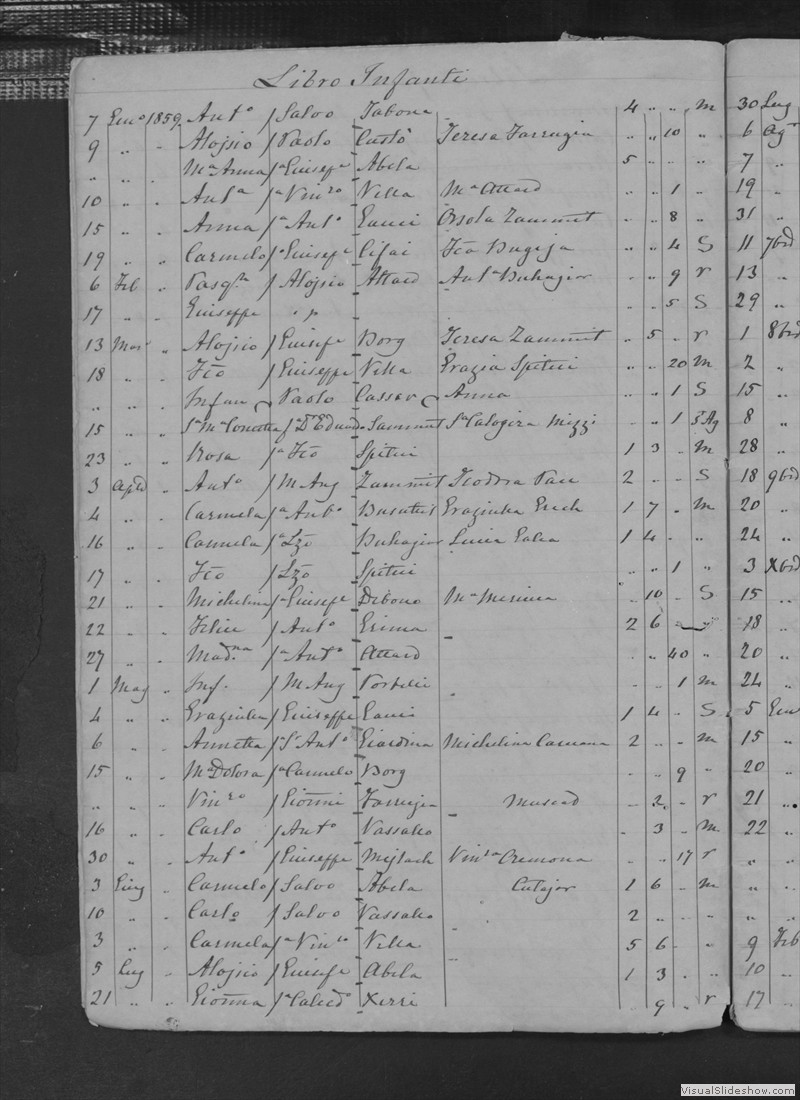 Libro Infanti
7 Gen° 1859 Ant° f Salvo Tabona 4 " " m 30 Lug
9 " " Alojsio f Paolo Custò Teresa Farrugia " " 10 " 6 Ag
" " " Mª Anna fª Giusepe Abela 5 " " " 7 "
10 " " Antª fª Vinzo Vella Mª Attard " " 1 " 19 "
15 " " Anna fª Ant° Gauci Orsola Zammit " " 8 " 31 "
19 " " Carmelo f Giusepe Cifai Fca Bugeja " " 4 S 11 7bre
6 Feb " Pasqle f Alojsio Attard Antª Buhagiar " " 9 r 13 "
17 " " Giuseppe " " " " 5 S 29 "
13 Mar " Alojsio f Giusepe Borg Teresa Zammit " 5 " r 1 8bre
18 " " Fco f Giuseppe Vella Grazia Spiteri " " 20 m 2 "
" " " Infan Paolo Cassar Anna " " 1 S 15 "
15 " " Sª Mª Concetta fª Dr Eduardo Sammut Sª Calogera Mizzi " " 1 8 "
23 " " Rosa fª Fco Spiteri 1 3 " m 28 "
3 Aple " Ant° f M Ang Zammit Teodora Pace 2 " " S 18 9bre
4 " " Carmela fª Ant° Busuttil Graziulla Grech 1 7 " m 20 "
16 " " Carmela fª Lzo Buhagiar Lucia Galea 1 4 " " 24 "
17 " " Fco f Lzo Spiteri " " 1 " 3 Xbre
21 " " Michelina fª Giusepe Debono Mª " 10 " S 15 "
22 " " Felice f Ant° Grima 2 6 " 18 "
27 " " Madna fª Ant° Attard " " 40 " 20 "
1 Mag " Inf. f M Ang Portelli " " 1 m 24 "
4 " " Graziulla f Giuseppe Gauci 1 4 " S 5 Gen
6 " " Annetta f Sr Ant° Giardina Michelina Caruana 2 " " m 15 "
15 " " Mª Dolora fª Carmelo Borg " " 9 " 20 "
" " " Vinzo f Gionni Farrugia Muscad " 2 " r 21 "
16 " " Carlo f Ant° Vassallo " 3 " m 22 "
30 " " Ant° f Giuseppe Mifsach Vinza Cremona " " 17 r " "
3 Giug " Carmelo f Salvo Abela Cutajar 1 6 " m " "
10 " " Carlo f Salvo Vassallo 2 " " " " "
3 " " Carmela fª Vinzo Vella 5 6 " " 9 Feb
5 Lug " Alojsio f Giusepe Abela 1 3 " " 10 "
21 " " Gionna fª Calcedo Xerri " 9 " r 17 "
VisualSlideshow.com